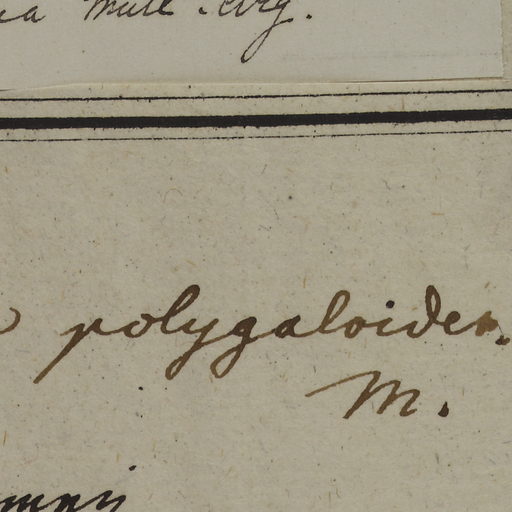 Müll. Arg.
polygaloides.
M.